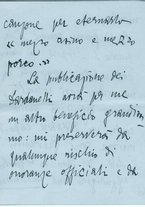 canzone per eternarlo
« mezzo asino e mezzo
porco. »
La pubblicazione dei
avrà per me
un altro beneficio grandissi
mo: mi preserverà da
qualunque rischio di
onoranze officiali e da